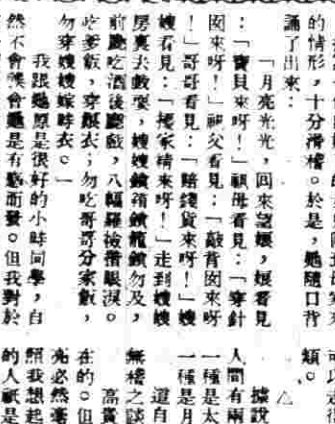 的情形，十分滑稽。於是，她隨口背
誦了出來：
「月亮光光，回來望娘，娘看見
：「寶貝來呀！」祖母看見：「穿針
囡來呀！」祖父看見：「敲背囡來呀
！」哥哥看見：「賠錢貨來呀！」嫂
嫂看見：「攪家精來呀！」走到嫂嫂
房裏去，嫂嫂鎖箱鎖籠鎖勿及，
前廳吃酒後廳戲，八幅羅裙揩眼淚。
吃爹飯，穿娘衣；勿吃哥哥分家飯，
勿穿嫂嫂嫁時衣。」
我跟她原是很好的小時同學，自
然不會誤會她是有感而發。但我對於
類。
△
據說
人間有兩
一種是太
一種是月
道自
無稽之談
高貴
在的。但
亮必然毫
照我想起
的人祇是